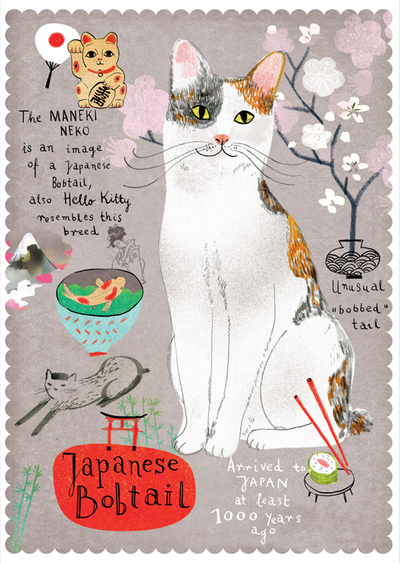 The MANEKI
NEKO
is an image
of a Japanese
Bobtail,
also Hello Kitty
resembles this
breed
Unusual
"bobbed"
tail
Japanese
Bobtail
Arrived to
JAPAN
at least
1000 years
ago